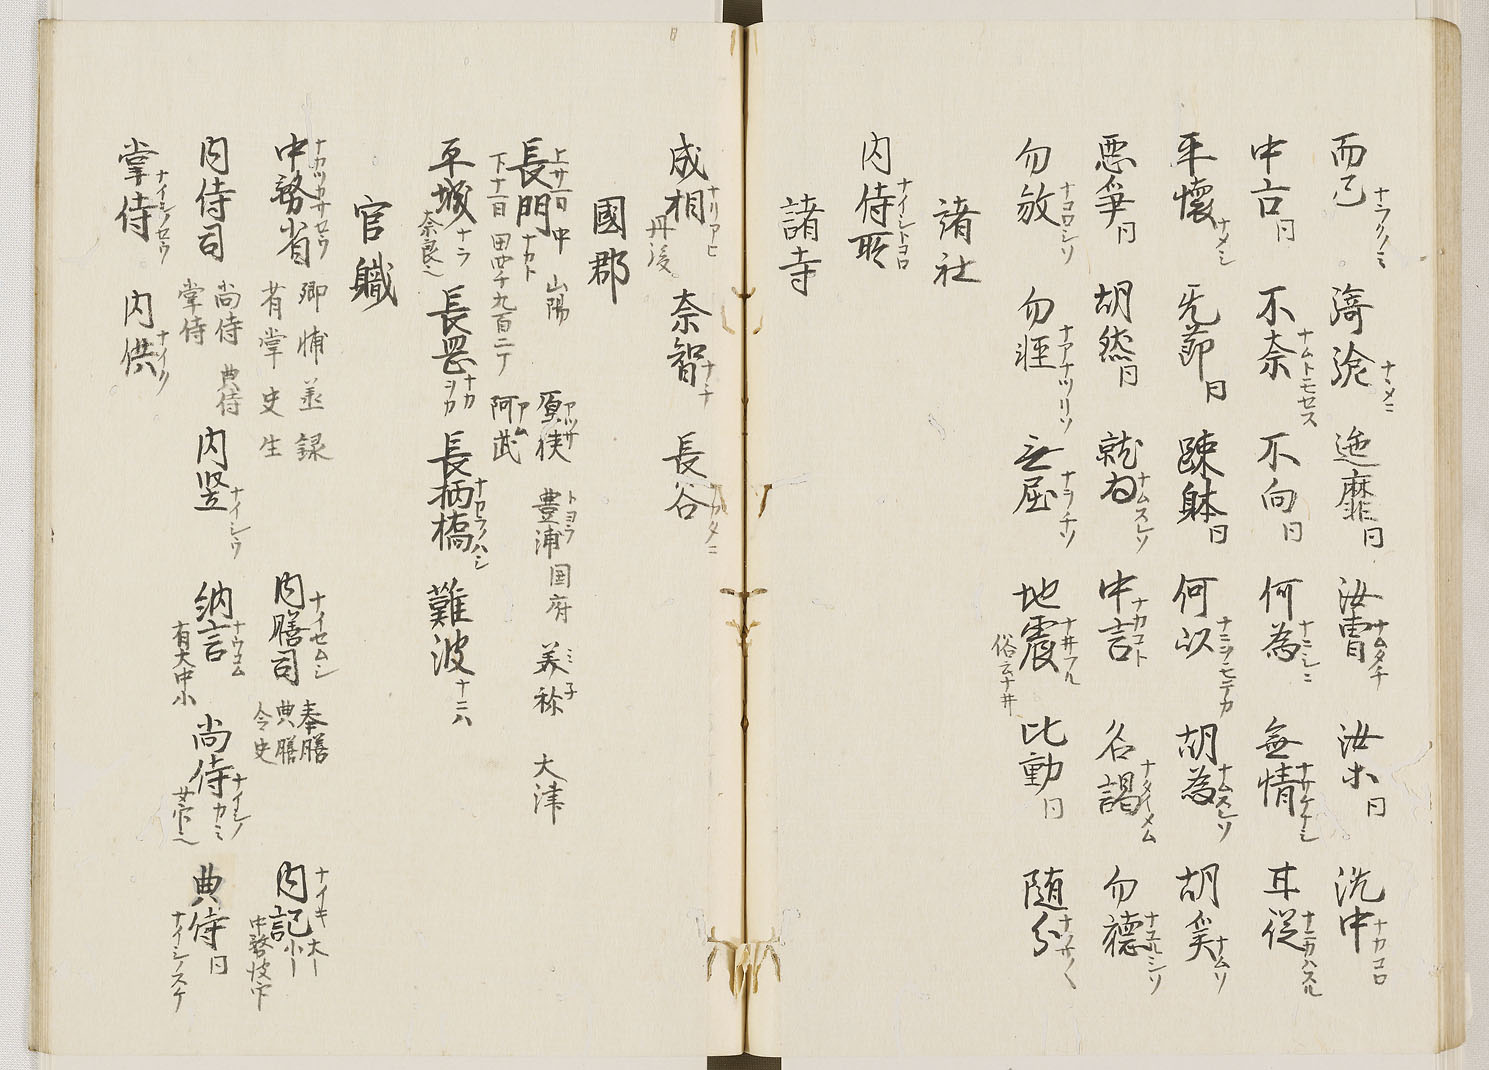 而已 ナラクノミ 漪淪 ナミメニ 迤靡 同 汝曹 ナムタチ 汝ホ 同 洗中 ナカコロ
中古 同 不奈 ナムトモセス 不向 同 何為 ナニシニ 無情 ナサケナシ 耳從 ナニカハスル
平懐 ナメシ 无節 同 踈躰 同 何以 ナニヲモテカ 胡為 ナムスレソ 胡奚 ナムソ
悪爭 同 胡然 同 就為 ナムスレソ 中言 ナカコト 名謁 ナタイメム 勿穂 ナユルシソ
勿放 ナコロシソ 勿 ナアナツリソ 無屈 ナヲチソ 地震 ナヰフル 俗云ナヰ 比動 同 随分 ナツサノく
諸社
内侍所 ナイシトコロ
諸寺
成相 ナリアヒ 丹後 奈智 ナチ 長谷 ナカタニ
國郡
長門 ナカト 上廿一日 中 下十一日 山陽 田四千九百二丁 厚狭 アツサ 阿武 アム 豊浦 トヨラ 国府 美祢 ミ子 大津
平城 ナラ 奈良之 長罡 ナカヲカ 長柄橋 ナカラノハシ 難波 ナニハ
官職
中務省 ナカツカサセウ 卿 輔 丞 録 有掌 史生 内膳司 ナイセムシ 奉膳 典膳 令史 内記 ナイキ 大ー 小ー 中務被官
内侍司 尚侍 典侍 掌侍 内竪 ナイシウ 納言 ナウコム 有大中小 尚侍 ナイシノカミ 女官之 典侍 同 ナイシノスケ
掌侍 ナイシノセウ 内供 ナイク